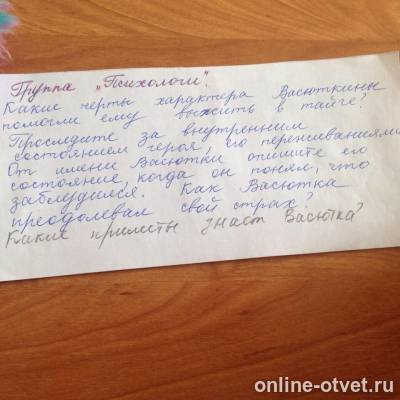 Группа „Психологи".
Какие черты характера Васюткины
помогли ему выжить в тайге?
Проследите за внутренним
состоянием героя, его переживаниями
От имени Васютки опишите его
состояние, когда он понял, что
заблудился. Как Васютка
преодолевал свой страх?
Какие приметы знает Васютка?
online-otvet.ru